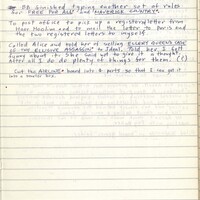 - SB finished typing another set of rules
for "FREE FOR ALL" and "MAVERICK COUNTRY".
To post office to pick up a registered letter from
and to mail the letter to Paris
and the two registered letters to myself.
Called Alice and told her of selling ELLERY QUEEN'S CASE
OF THE ELUSIVE ASSASSIN to Ideal. Told her I felt
funny about it. She said not to give it a thought.
After all I do do plenty of things for them. (!)
Cut the AIRLINE board into 4 parts so that I can put it
into a smaller box.